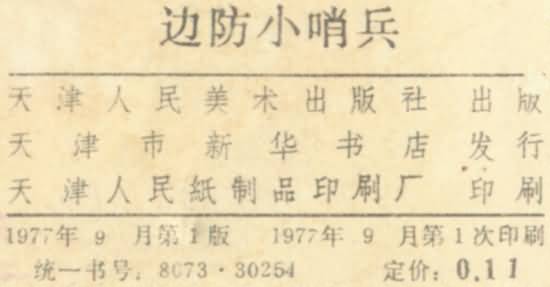 边防小哨兵
天津人民美术出版社 出版
天津市新华书店 发行
天津人民紙制品印刷厂 印刷
1977年9月第1版 1977年9月第1次印刷
统一书号：8073·30254 定价：0.11